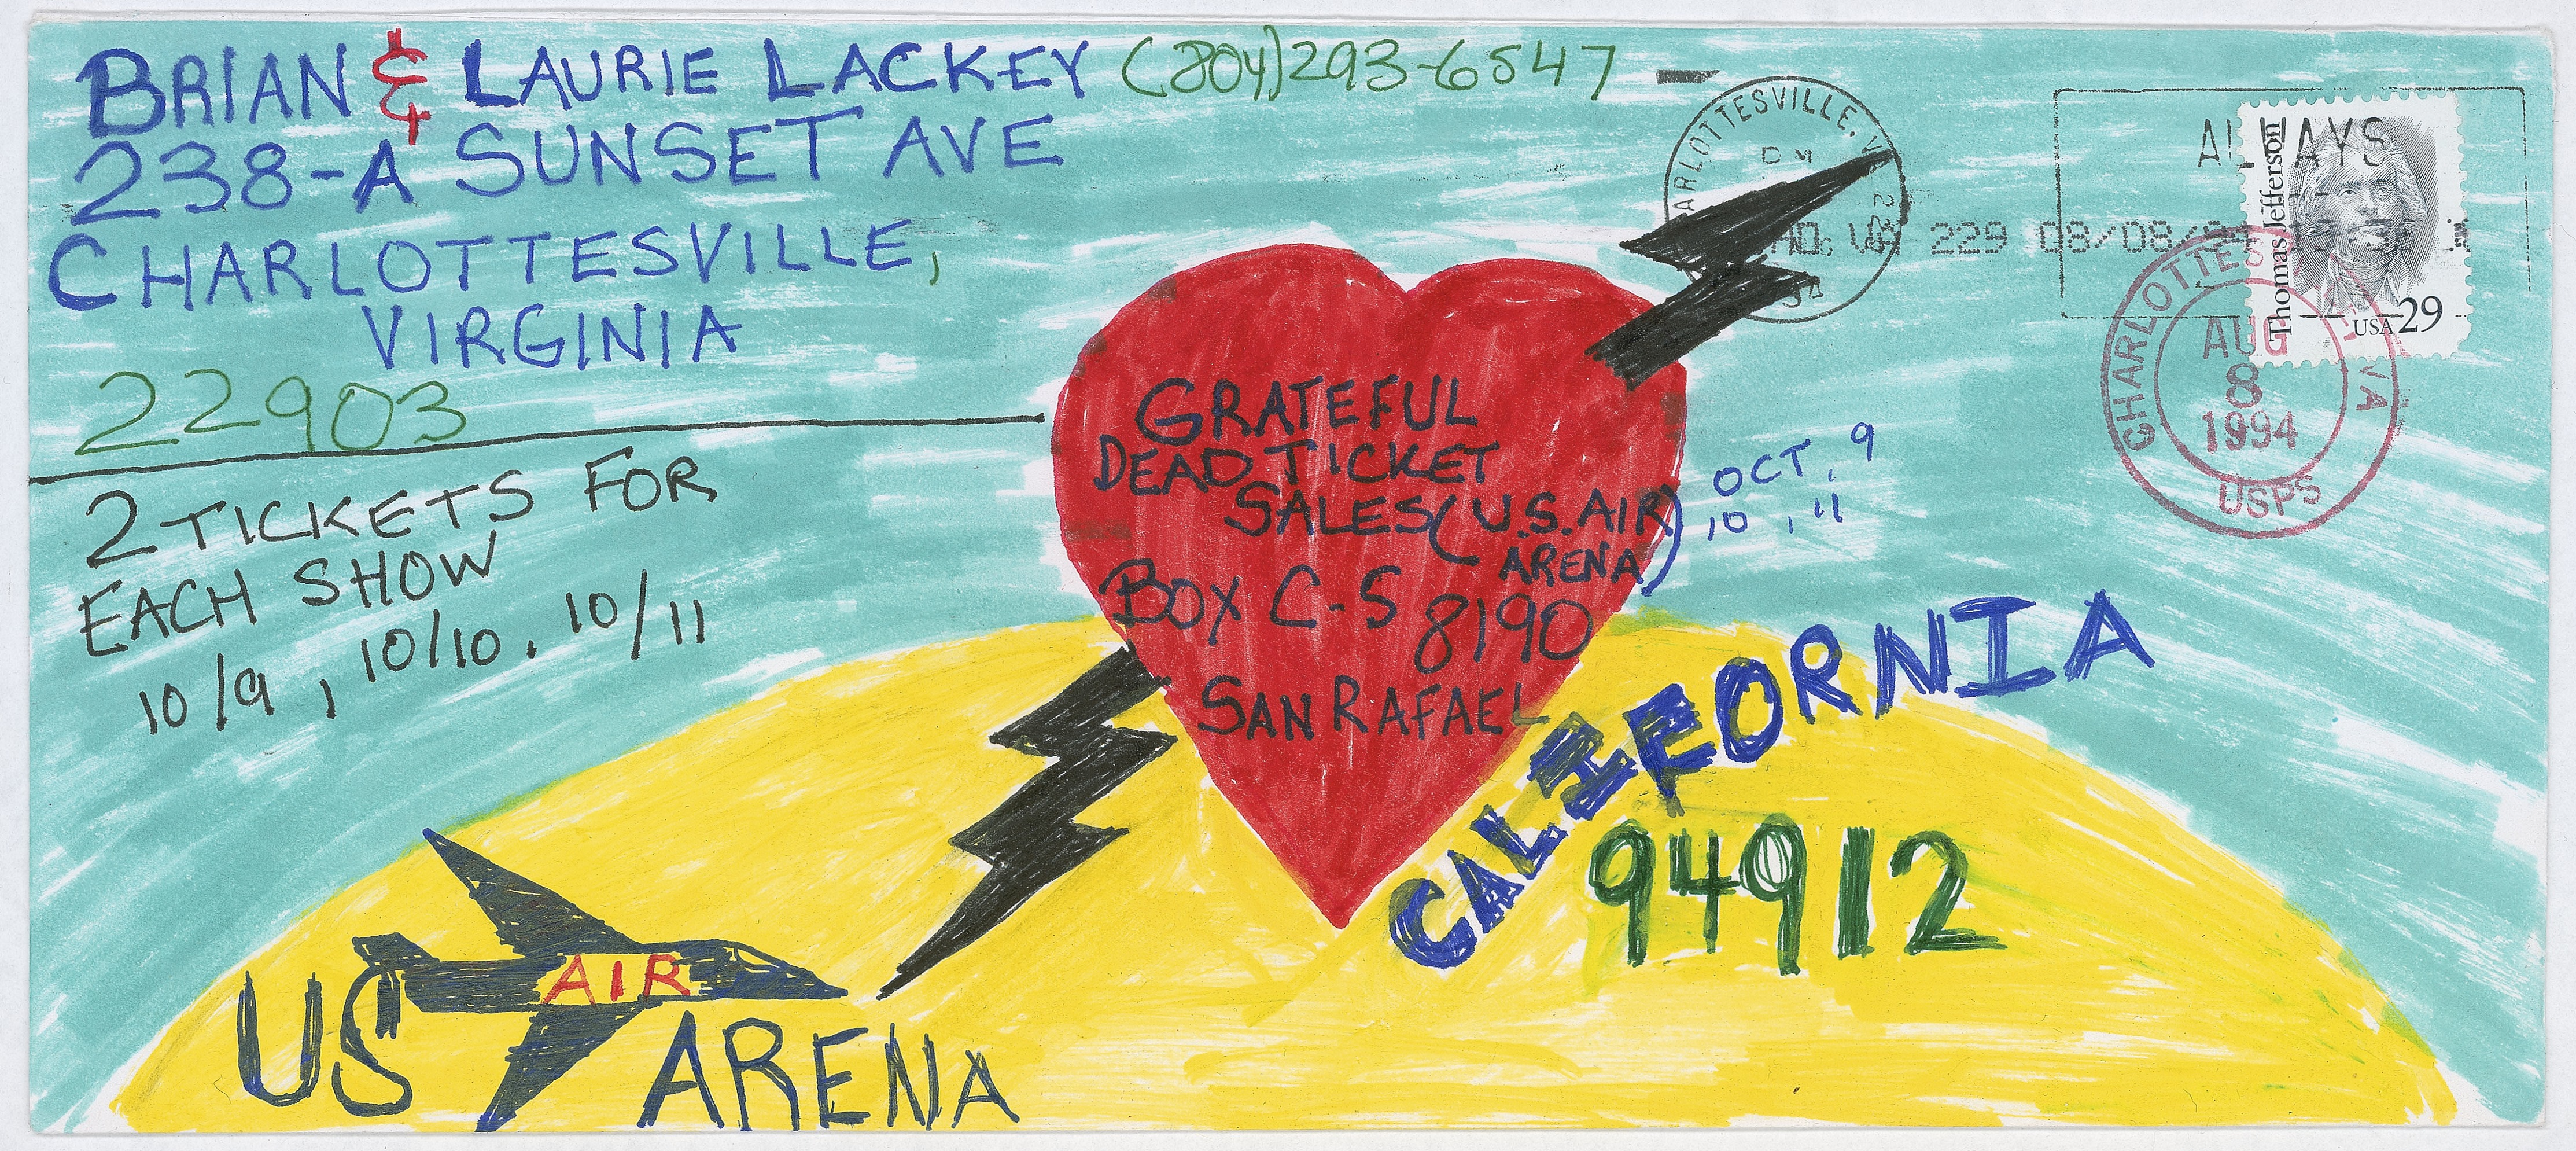 BRIAN & LAURIE LACKEY (804)293-6547
238-A SUNSET AVE
CHARLOTTESVILLE,
VIRGINIA
22903
2 TICKETS FOR
EACH SHOW
10/9, 10/10, 10/11
GRATEFUL
DEAD TICKET
SALES (U.S. AIR
ARENA)
OCT, 9
10, 11
BOX C-S 8190
SAN RAFAEL
CALIFORNIA
94912
US AIR ARENA
CHARLOTTESVILLE, V
PM
94
ALWAYS
VA 229 08/08/94
Thomas Jefferson
USA 29
CHARLOTTES VA
AUG
8
1994
USPS